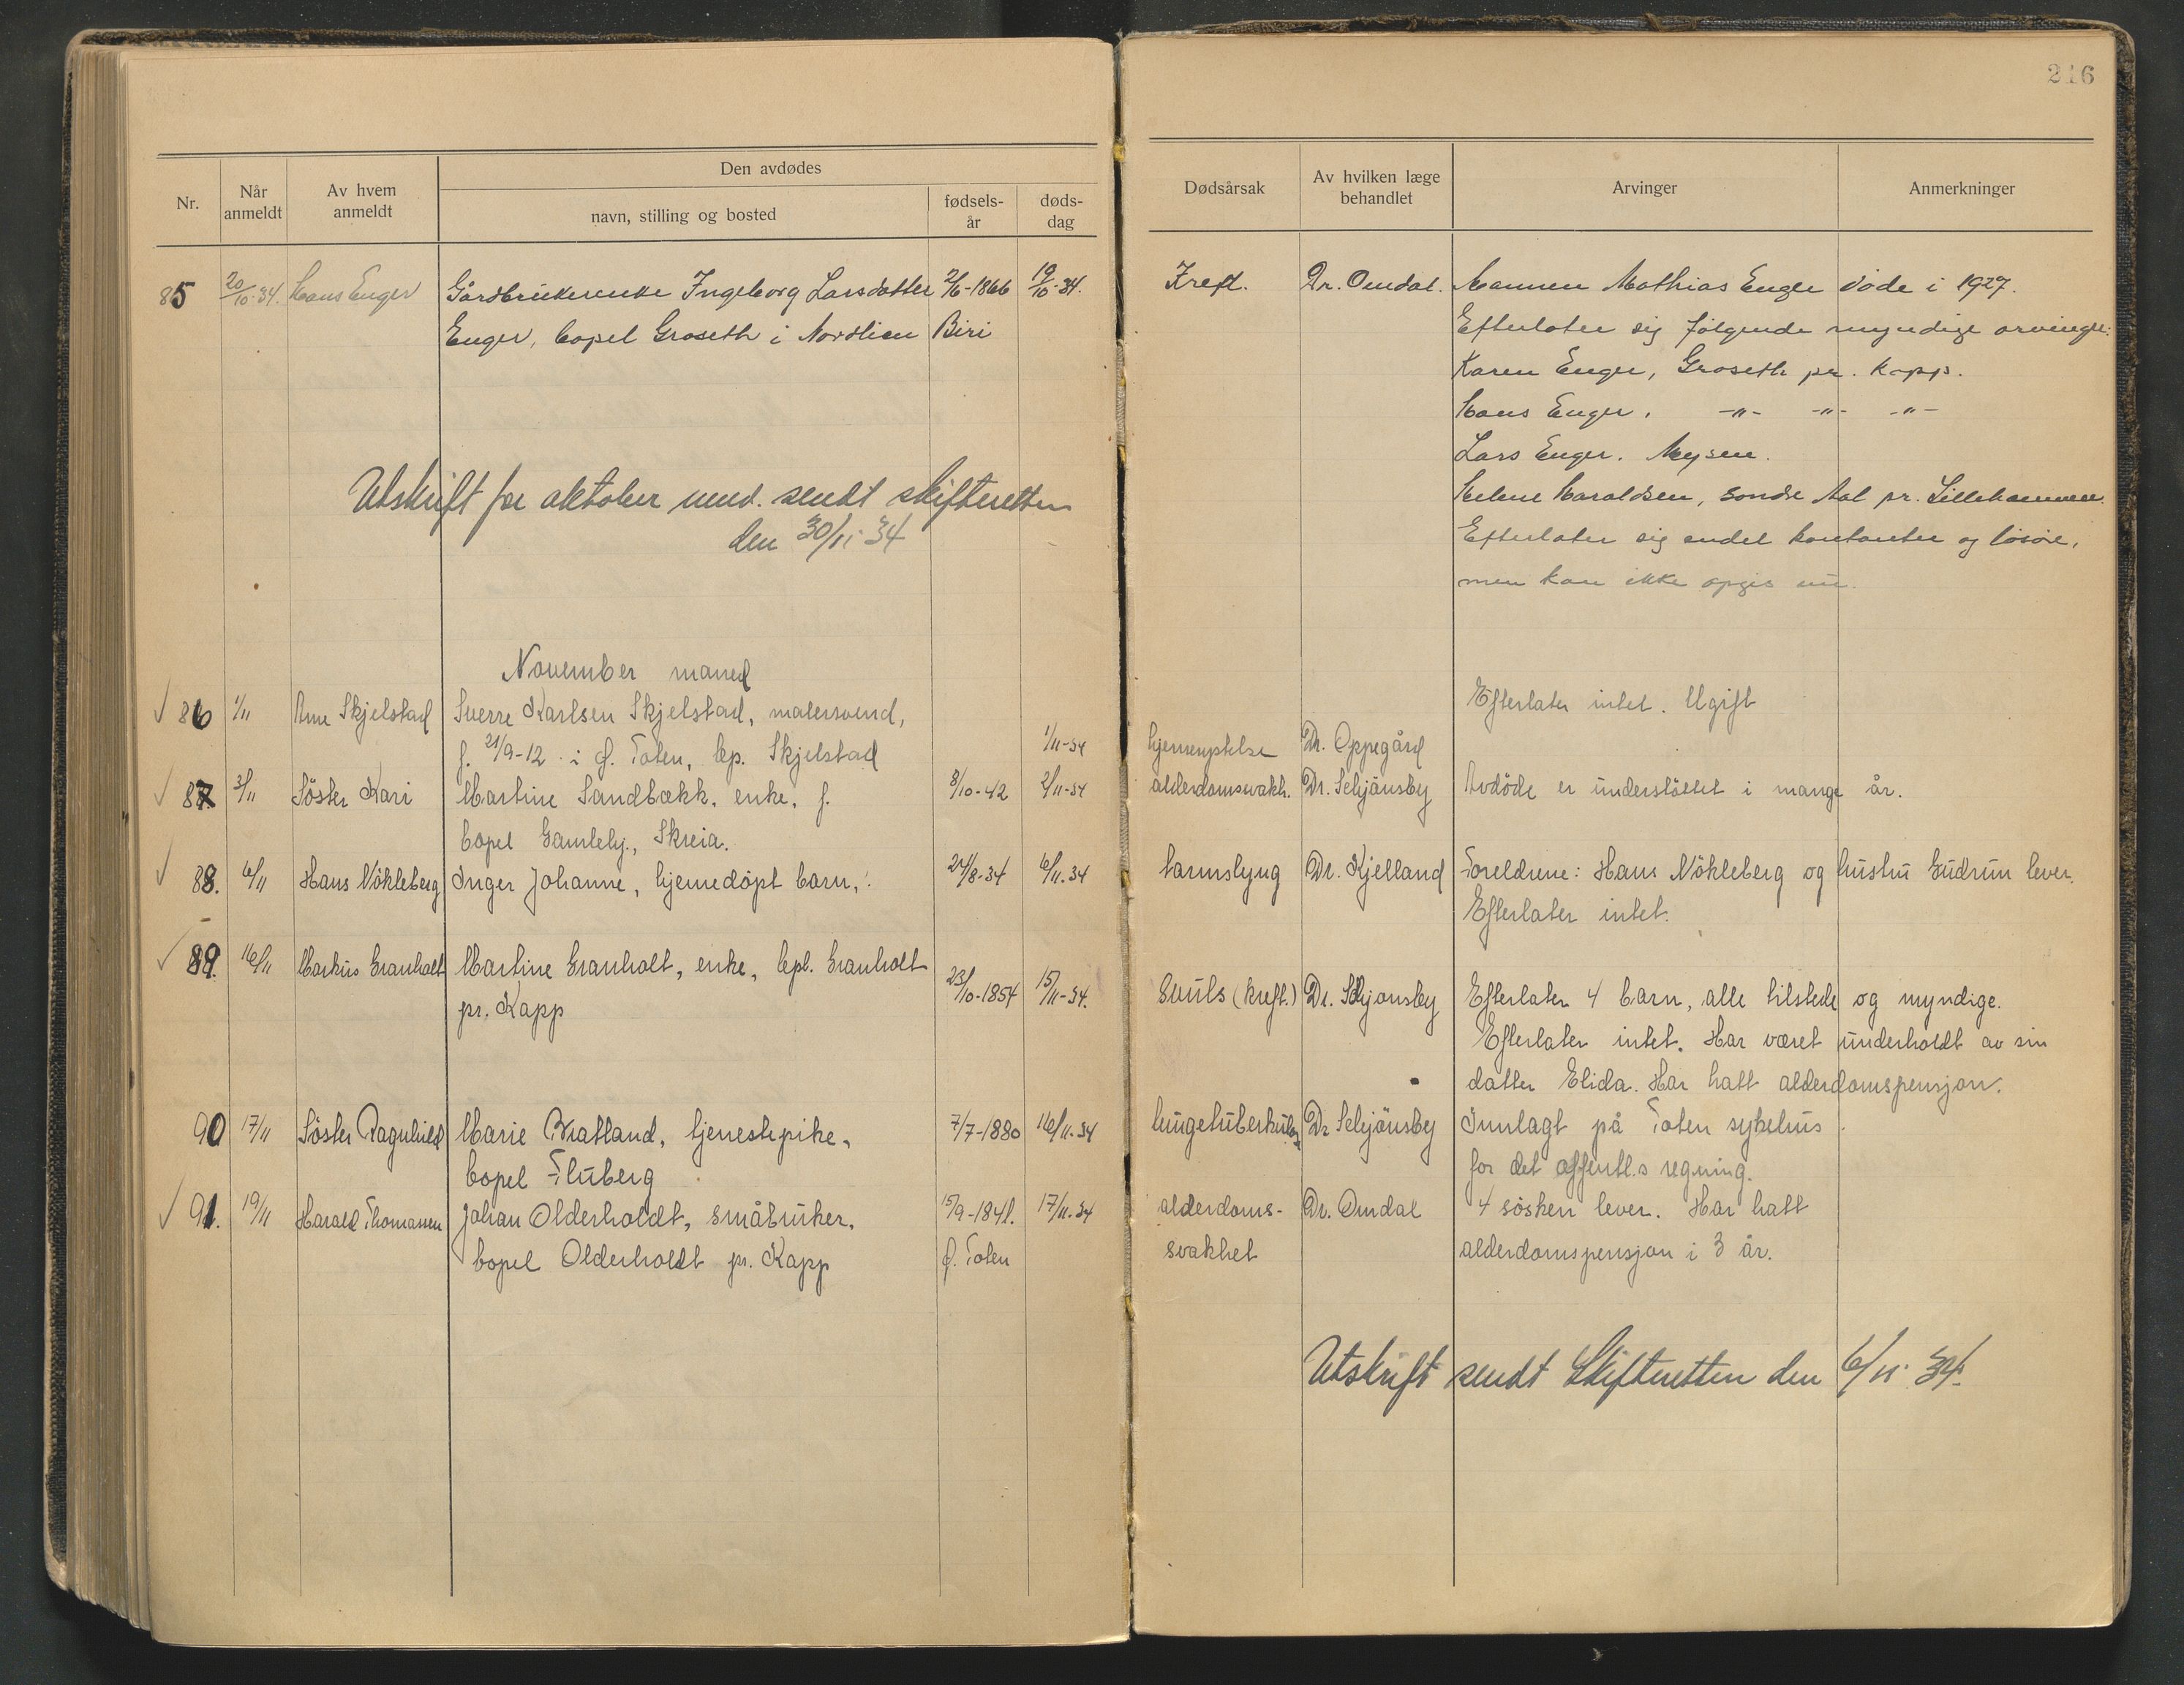 216
Nr.
Når anmeldt
Av hvem anmeldt
Den avdødes
navn, stilling og bosted
fødsels-år
døds-dag
Dødsårsak
Av hvilken læge behandlet
Arvinger
Anmerkninger
85 20/10-34. Hans Enger Gårdbrukerenke Ingeborg Larsdatter 2/6-1866 19/10-34. Kreft. Dr. Omdal. Mannen Mathias Enger døde i 1927.
Enger, bopel Groseth i Nordlien Biri Efterlater sig følgende myndige arvinger:
Karen Enger, Groseth pr. Kapp.
Hans Enger. -"- -"- -"-
Lars Enger. Mysen.
Utskrift for oktober mnd. sendt skifteretten Helene Haraldsen, søndre Aal pr. Lillehammer.
den 30/11-34 Efterlater sig endel kontanter og løsøre,
men kan ikke opgis nu.
November måned
86 1/11 Anne Skjelstad Sverre Karlsen Skjelstad, malersvend, Efterlater intet. Ugift
f. 21/9-12 i Ø. Toten, bp. Skjelstad 1/11-34 Dr. Oppegård
87. 3/11 Söster Kari Martine Sandbækk, enke, f. 8/10-42 2/11-34 alderdomsvakh. Dr. Schjönsby Avdöde er understöttet i mange år.
bopel Gamleby., Skreia.
88. 6/11 Hans Nökleberg Inger Johanne, hjemedöpt barn, 24/8-34 6/11.34 tarmslyng Dr. Kjelland Foreldrene: Hans Nökleberg og hustru Gudrun lever.
Efterlater intet.
89. 16/11 Markus Granholt Martine Granholt, enke, bpl. Granholt 23/10-1854 15/11-34. Svuls (kreft.) Dr. Schjønsby Efterlater 4 barn, alle tilstede og myndige.
pr. Kapp Efterlater intet. Har været underholdt av sin
datter Elida. Har hatt alderdomspensjon.
90 17/11 Söster Ragnhild Marie Bratland, tjenestepike, 7/7-1880 16/11-34 lungetuberkulose Dr Schjönsby Innlagt på Toten sykehus
bopel Fluberg for det offentl.s regning.
91. 19/11 Harald Thomassen Johan Olderholdt, småbruker, 15/9-1841. 17/11-34 alderdoms- Dr. Omdal 4 sösken lever. Har hatt
bopel Olderholdt pr. Kapp Ø. Toten svakhet alderdomspensjon i 3 år.
Utskrift sendt Skifteretten den 6/11-34.